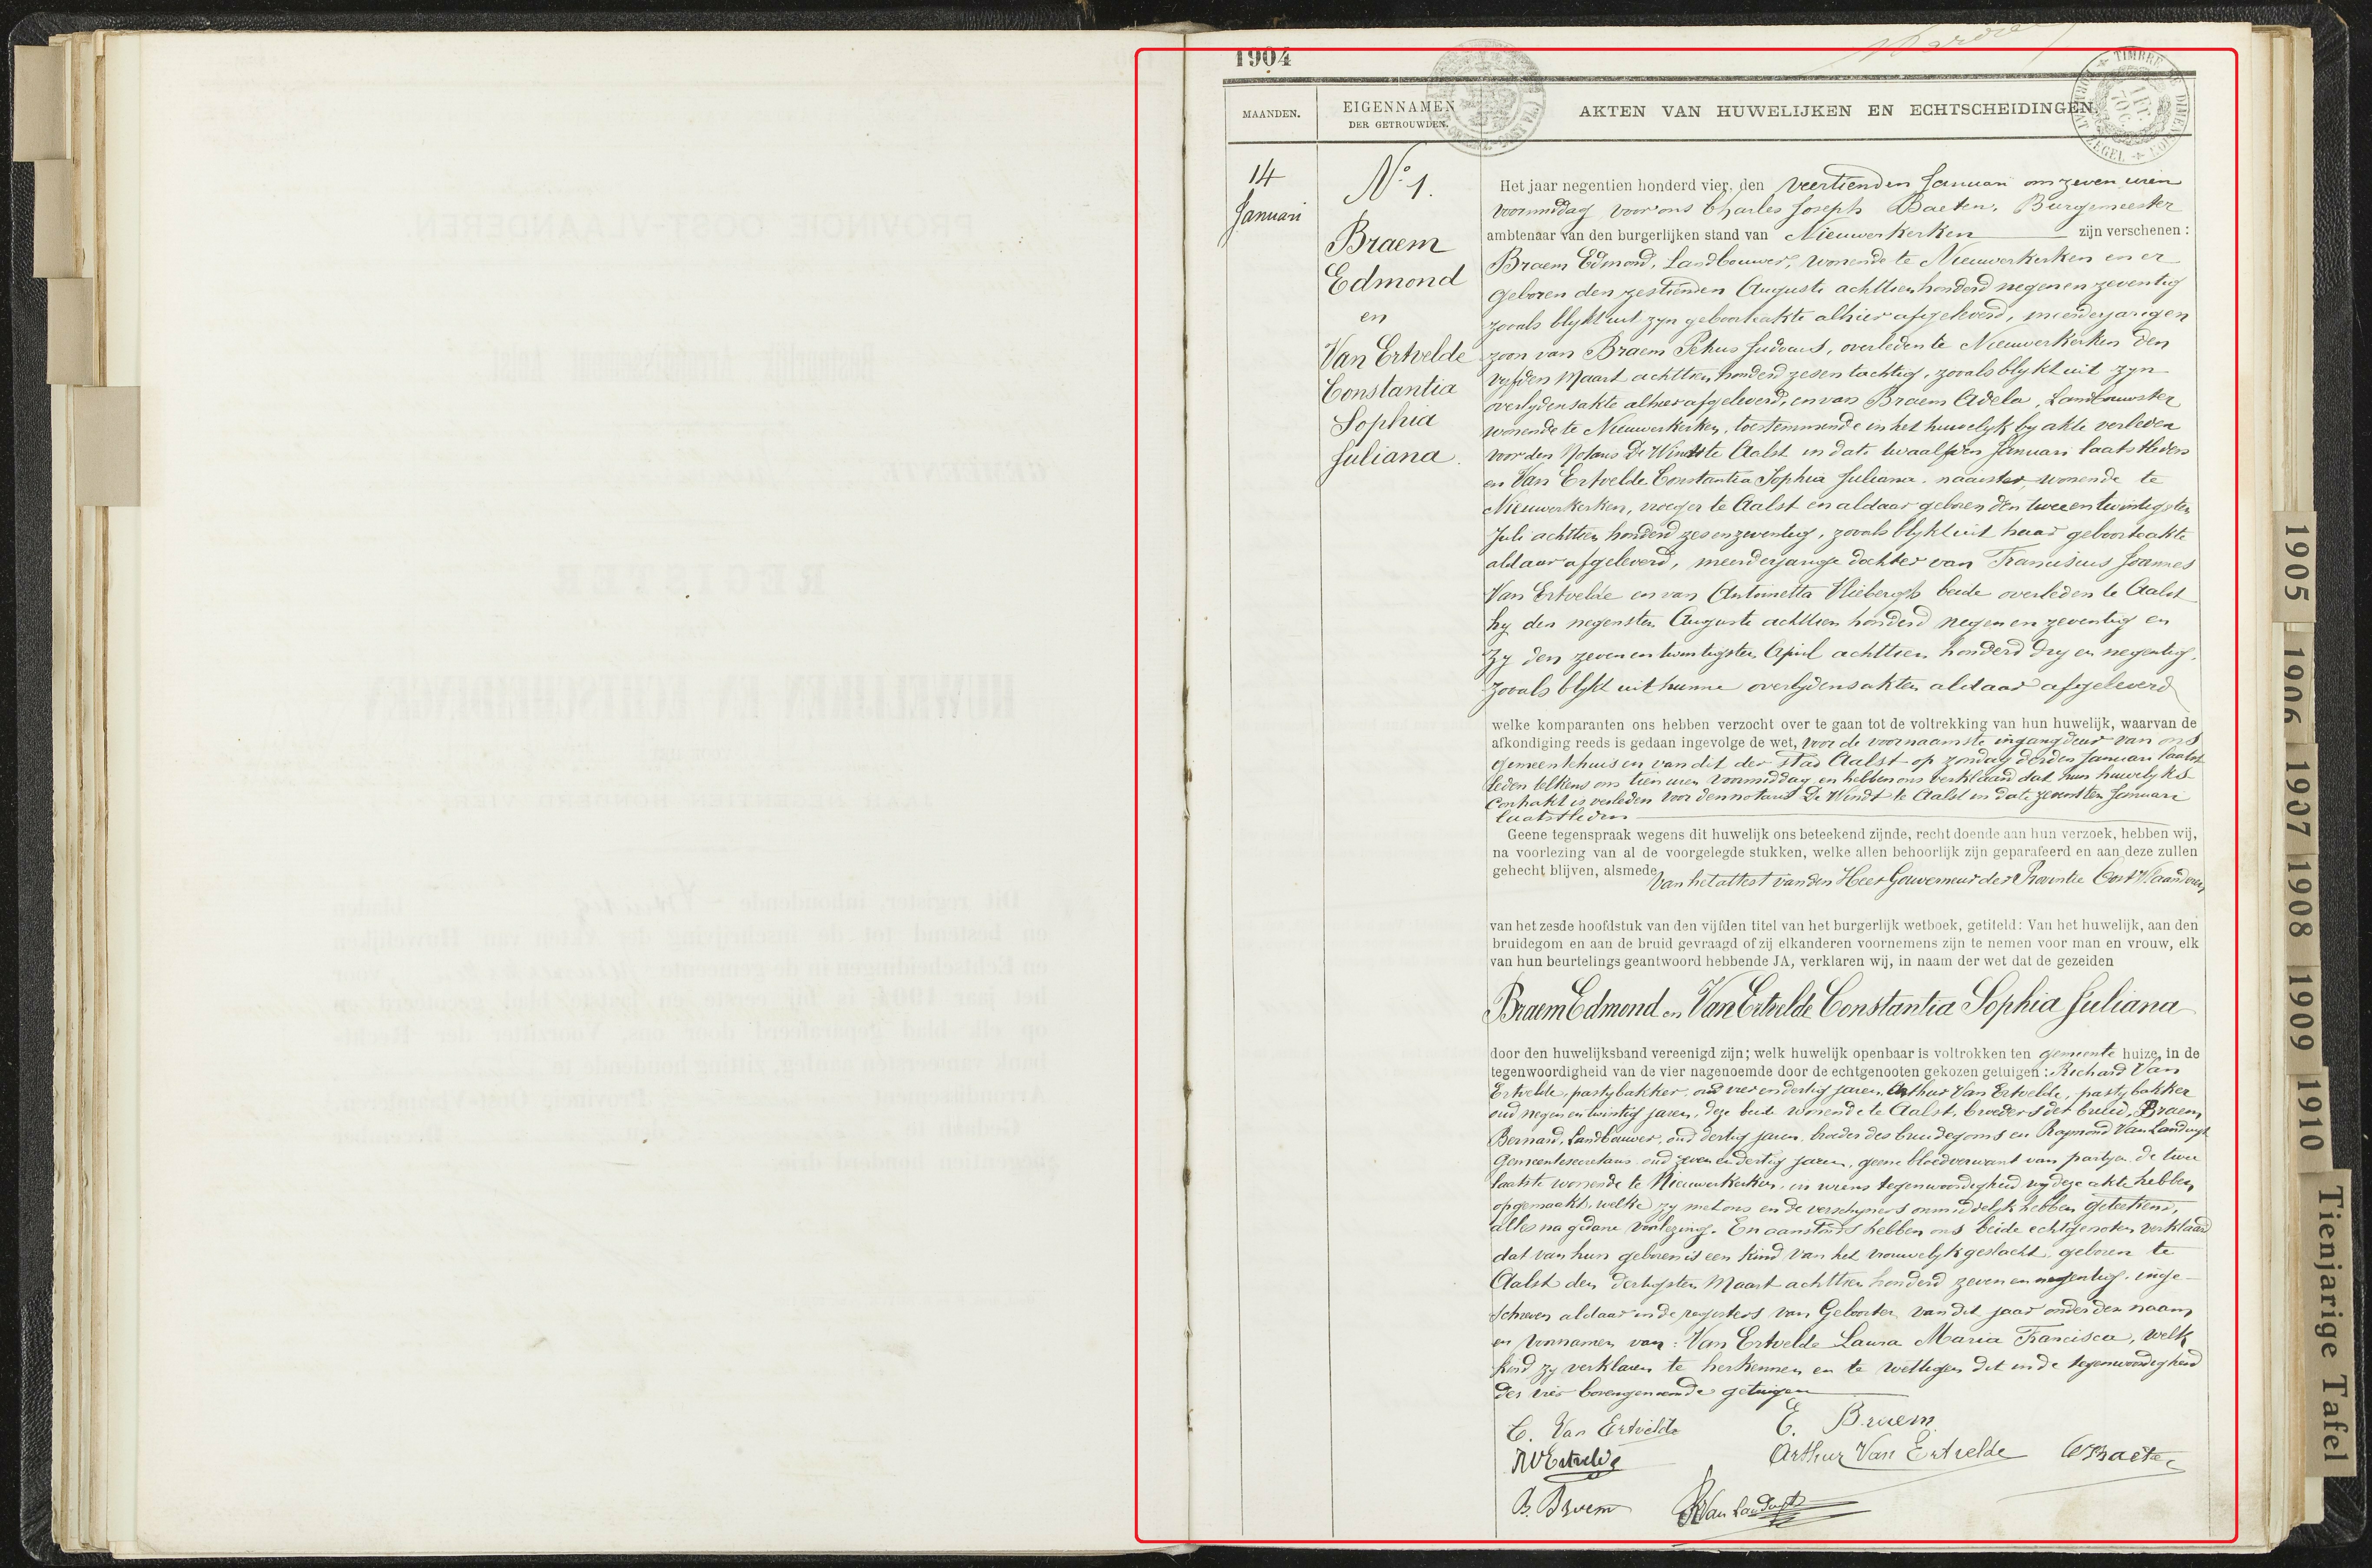 1904
MAANDEN.
EIGENNAMEN
DER GETROUWDEN.
AKTEN VAN HUWELIJKEN EN ECHTSCHEIDINGEN
14
Januari
N° 1.
Braem
Edmond
en
Van Ertvelde
Constantia
Sophia
Juliana.
Het jaar negentien honderd vier, den veertienden Januari om zeven uren
voormiddag voor ons Charles Joseph Baeten, Burgemeester
ambtenaar van den burgerlijken stand van Nieuwerkerken zijn verschenen :
Braem Edmond, Landbouwer, wonende te Nieuwerkerken en er
geboren den zestienden Augusti achttien honderd negenenzeventig
zooals blykt uit zyn geboorteakte alhier afgeleverd, meerderjarigen
zoon van Braem Petrus Judocus, overleden te Nieuwerkerken den
vyfden Maart achttien honderd zesentachtig, zooals blykt uit zyn
overlydensakte alhier afgeleverd, en van Braem Adela, Landbouwster
wonende te Nieuwerkerken, toestemmende in het huwelyk by akte verleden
voor den Notaris De Windt te Aalst in date twaalfden Januari laatstleden
en Van Ertvelde Constantia Sophia Juliana, naaister, wonende te
Nieuwerkerken, vroeger te Aalst en aldaar geboren den tweeentwintigsten
Juli achttien honderd zesenzeventig, zooals blykt uit haar geboorteakte
aldaar afgeleverd, meerderjarige dochter van Franciscus Joannes
Van Ertvelde en van Antoinetta Vliebergh beide overleden te Aalst
hy den negensten Augusti achttien honderd negen en zeventig en
Zy den zevenentwintigsten April achttien honderd dry en negentig,
zooals blykt uit hunne overlydensakten aldaar afgeleverd
welke komparanten ons hebben verzocht over te gaan tot de voltrekking van hun huwelijk, waarvan de
afkondiging reeds is gedaan ingevolge de wet, voor de voornaamste ingangdeur van ons
gemeentehuis en van dit der stad Aalst op zondag derden Januari laatst
leden telkens om tien uren voormiddag en hebben ons verklaard dat hun huwelyks
Contrakt is verleden voor den notaris De Windt te Aalst in date zevensten Januari
laatstleden
Geene tegenspraak wegens dit huwelijk ons beteekend zijnde, recht doende aan hun verzoek, hebben wij,
na voorlezing van al de voorgelegde stukken, welke allen behoorlijk zijn geparafeerd en aan deze zullen
gehecht blijven, alsmede van het attest van den Heer Gouverneur der Provintie Oost Vlaanderen
van het zesde hoofdstuk van den vijfden titel van het burgerlijk wetboek, getiteld: Van het huwelijk, aan den
bruidegom en aan de bruid gevraagd of zij elkanderen voornemens zijn te nemen voor man en vrouw, elk
van hun beurtelings geantwoord hebbende JA, verklaren wij, in naam der wet dat de gezeiden
Braem Edmond en Van Ertvelde Constantia Sophia Juliana
door den huwelijksband vereenigd zijn; welk huwelijk openbaar is voltrokken ten gemeente huize, in de
tegenwoordigheid van de vier nagenoemde door de echtgenooten gekozen getuigen : Richard Van
Ertvelde, pastybakker, oud vier en dertig jaren, Arthur Van Ertvelde, pastybakker
oud negen en twintig jaren, deze beide wonende te Aalst, broeders der bruid, Braem
Bernard, Landbouwer, oud dertig jaren, broeder des bruidegoms en Raymond Van Landuyt
Gemeentesecretaris oud zeven en dertig jaren, geene bloedverwant van partyen de twee
laatste wonende te Nieuwerkerken, in wiens tegenwoordigheid wy deze akte hebben
opgemaakt, welke zy met ons en de verschyners onmiddelyk hebben geteekend,
alles na gedane voorlezing. En aanstonds hebben ons beide echtgenoten verklaard
dat van hun geboren is een kind van het vrouwelyk geslacht, geboren te
Aalst den dertigsten Maart achttien honderd zeven en negentig, inge-
schreven aldaar in de registers van Geboorten van dit jaar onder den naam
en voornamen van : Van Ertvelde Laura Maria Francisca, welk
kind zy verklaren te herkennen en te wettigen dit in de tegenwoordigheid
der vier bovengenoemde getuigen
C. Van Ertvelde
E. Braem
RVErtvelde
Arthur Van Ertvelde
B. Braem
RVan Landuyt
1905
1906
1907
1908
1909
1910
Tienjarige Tafel